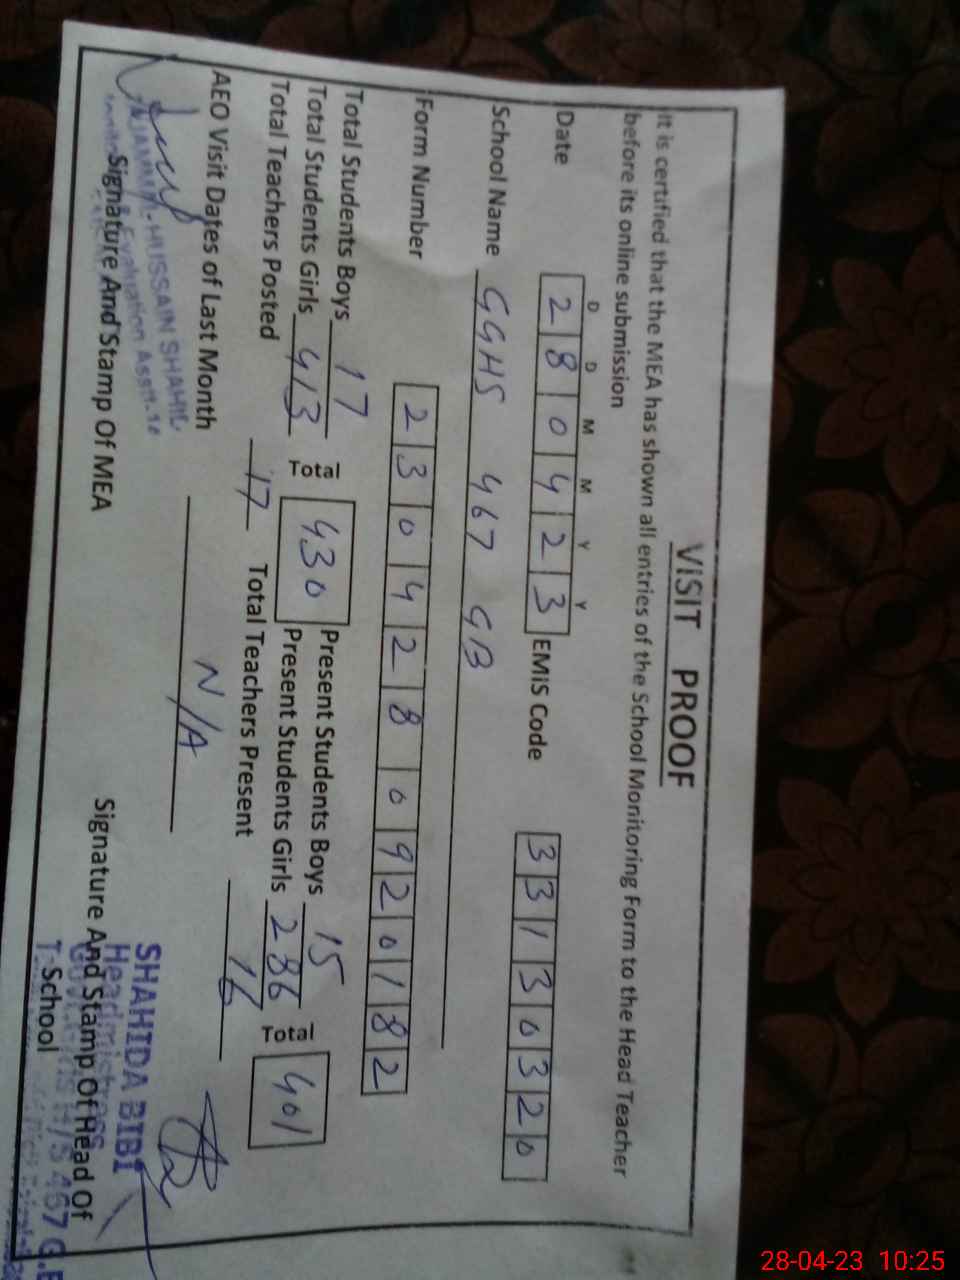 VISIT PROOF
It is certified that the MEA has shown all entries of the School Monitoring Form to the Head Teacher
before its online submission
D D M M Y Y
Date 2 8 0 4 2 3 EMiS Code 3 3 1 3 0 3 2 0
School Name GGHS 467 GB
Form Number 2 3 0 4 2 8 0 9 2 0 1 8 2
Total Students Boys 17 Present Students Boys 15
Total Students Girls 413 Total 430 Present Students Girls 286 Total 401
Total Teachers Posted 17 Total Teachers Present 16
AEO Visit Dates of Last Month N/A
HUSSAIN SHAHID
Evaluation Asstt.
Signature And Stamp Of MEA
SHAHIDA BIBI
Headmistress
467 G.B
Signature And Stamp Of Head Of
School
28-04-23 10:25